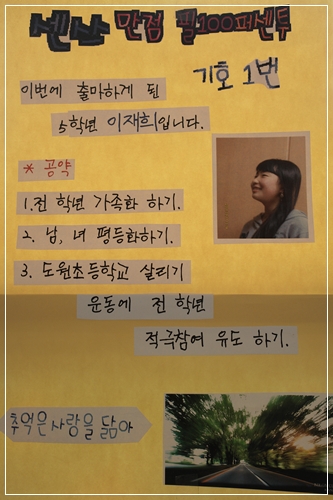 센스 만점 필100퍼센투
기호 1번
이번에 출마하게 된
5학년 이재희입니다.
* 공약
1.전 학년 가족화 하기.
2. 남, 녀 평등화하기.
3. 도원초등학교 살리기
운동에 전 학년
적극참여 유도 하기.
추억은 사랑을 닮아